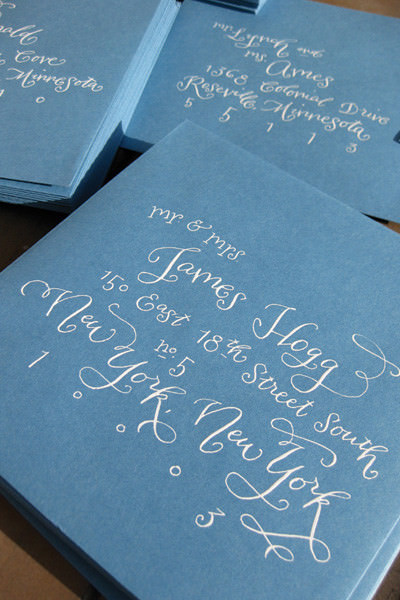 Cove
Minnesota
1 0
mr. Lynch and
ms. Ames
1563 Colonial Drive
Roseville, Minnesota
5 5 1 1 3
mr. & mrs
James Hogg
150 East 18th Street South
no. 5
New York, New York
1 0 0 0 3